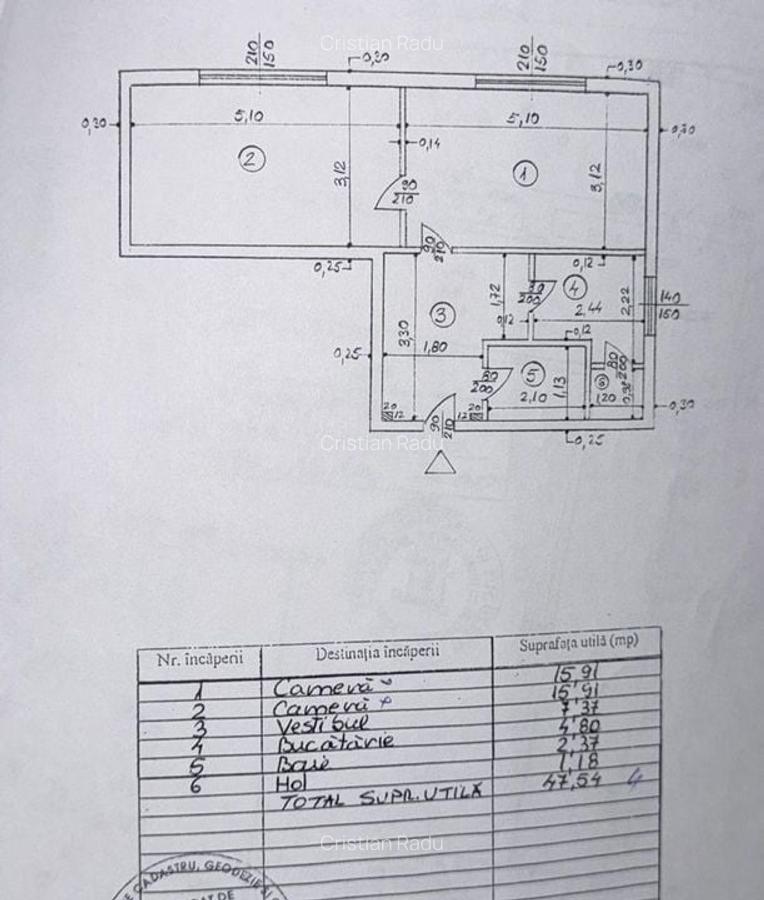 Cristian Radu
210
150
0,30
210
150
0,30
0,30
5,10
5,10
0,30
0,14
2
3,12
90
210
1
3,12
90
210
0,25
0,12
80
200
4
1,72
3
2,44
2,22
140
150
3,30
0,12
0,12
0,25
1,80
80
200
5
1,13
80
200
6
2,10
1,20
0,98
0,30
20
12
90
210
12
20
Cristian Radu
0,25
Nr. încăperii Destinaţia încăperii Suprafaţa utilă (mp)
1 Cameră 15,91
2 Cameră 15,91
3 Vestibul 7,37
4 Bucătărie 4,80
5 Baie 2,37
6 Hol 1,18
TOTAL SUPR. UTILĂ 47,54 4
Cristian Radu
DE CADASTRU, GEODEZIE ŞI